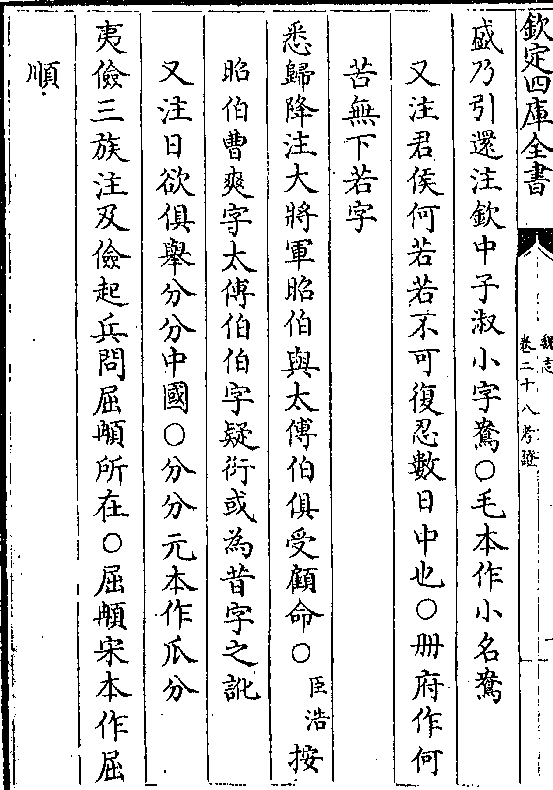 欽定四庫全書
魏志
卷二十八考證
盛乃引還注欽中子淑小字鴦○毛本作小名鴦
又注君侯何若若不可復忍數日中也○冊府作何
苦無下若字
悉歸降注大將軍昭伯與太傅伯俱受顧命○臣浩按
昭伯曹爽字太傅伯伯字疑衍或為昔字之訛
又注日欲俱舉分分中國○分分元本作瓜分
夷儉三族注及儉起兵問屈䪼所在○屈䪼宋本作屈
順